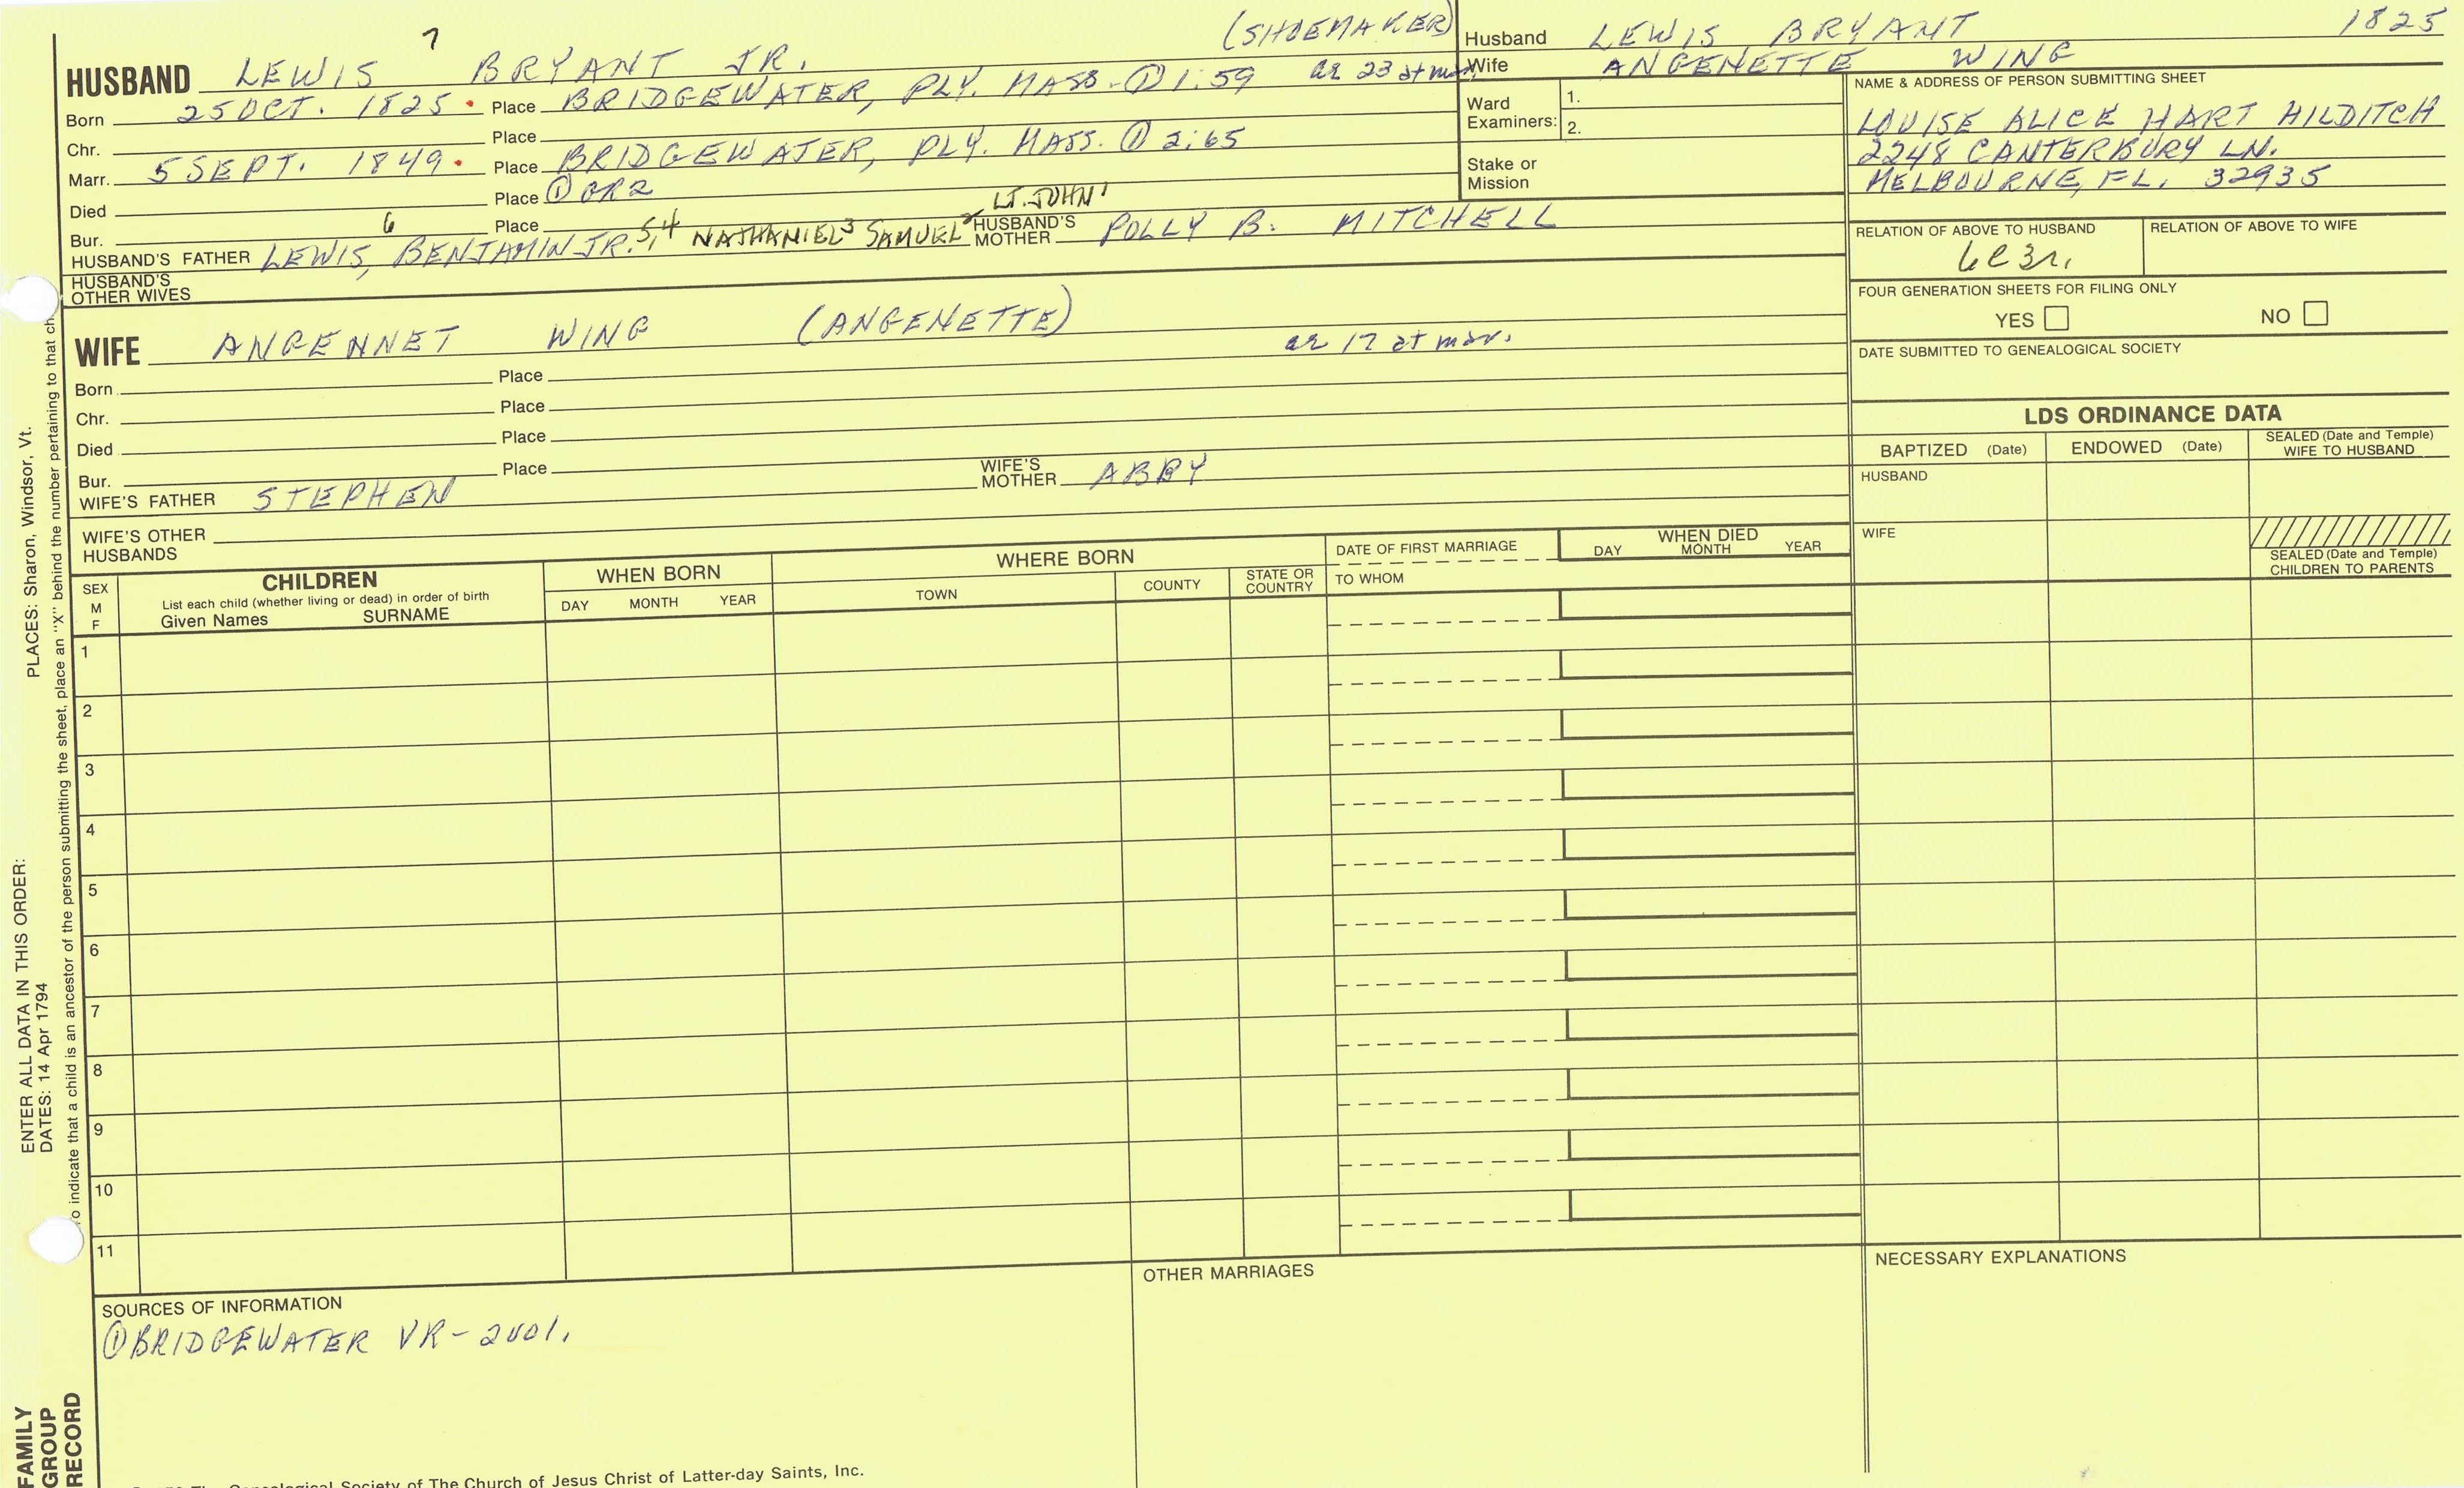 7
(SHOEMAKER)
HUSBAND LEWIS BRYANT JR. ae 23 at mar.
Born 25 OCT. 1825 • Place BRIDGEWATER, PLY. MASS. ① 1:59
Chr. Place
Marr. 5 SEPT. 1849 • Place BRIDGEWATER, PLY. MASS. ① 2:65
Died Place ① GR2
Bur. Place
HUSBAND'S FATHER LEWIS,⁶ BENJAMIN JR.⁵,⁴ NATHANIEL³ SAMUEL² LT. JOHN¹ HUSBAND'S MOTHER POLLY B. MITCHELL
HUSBAND'S OTHER WIVES
WIFE ANGENNET WING (ANGENETTE) ae 17 at mar.
Born Place
Chr. Place
Died Place
Bur. Place
WIFE'S FATHER STEPHEN WIFE'S MOTHER ABBY
WIFE'S OTHER HUSBANDS
Husband LEWIS BRYANT 1825
Wife ANGENETTE WING
Ward Examiners: 1.
2.
Stake or Mission
NAME & ADDRESS OF PERSON SUBMITTING SHEET
LOUISE ALICE HART HILDITCH
2248 CANTERBURY LN.
MELBOURNE, FL. 32935
RELATION OF ABOVE TO HUSBAND RELATION OF ABOVE TO WIFE
6c3r.
FOUR GENERATION SHEETS FOR FILING ONLY
YES NO
DATE SUBMITTED TO GENEALOGICAL SOCIETY
LDS ORDINANCE DATA
BAPTIZED (Date) ENDOWED (Date) SEALED (Date and Temple) WIFE TO HUSBAND
HUSBAND
WIFE
SEALED (Date and Temple) CHILDREN TO PARENTS
SEX M F
CHILDREN
List each child (whether living or dead) in order of birth
Given Names SURNAME
WHEN BORN
DAY MONTH YEAR
WHERE BORN
TOWN COUNTY STATE OR COUNTRY
DATE OF FIRST MARRIAGE
TO WHOM
WHEN DIED
DAY MONTH YEAR
1
2
3
4
5
6
7
8
9
10
11
SOURCES OF INFORMATION
① BRIDGEWATER VR - 2vol.
OTHER MARRIAGES
NECESSARY EXPLANATIONS
The Genealogical Society of The Church of Jesus Christ of Latter-day Saints, Inc.
ENTER ALL DATA IN THIS ORDER:
DATES: 14 Apr 1794
PLACES: Sharon, Windsor, Vt.
To indicate that a child is an ancestor of the person submitting the sheet, place an "X" behind the number pertaining to that ch
FAMILY
GROUP
RECORD